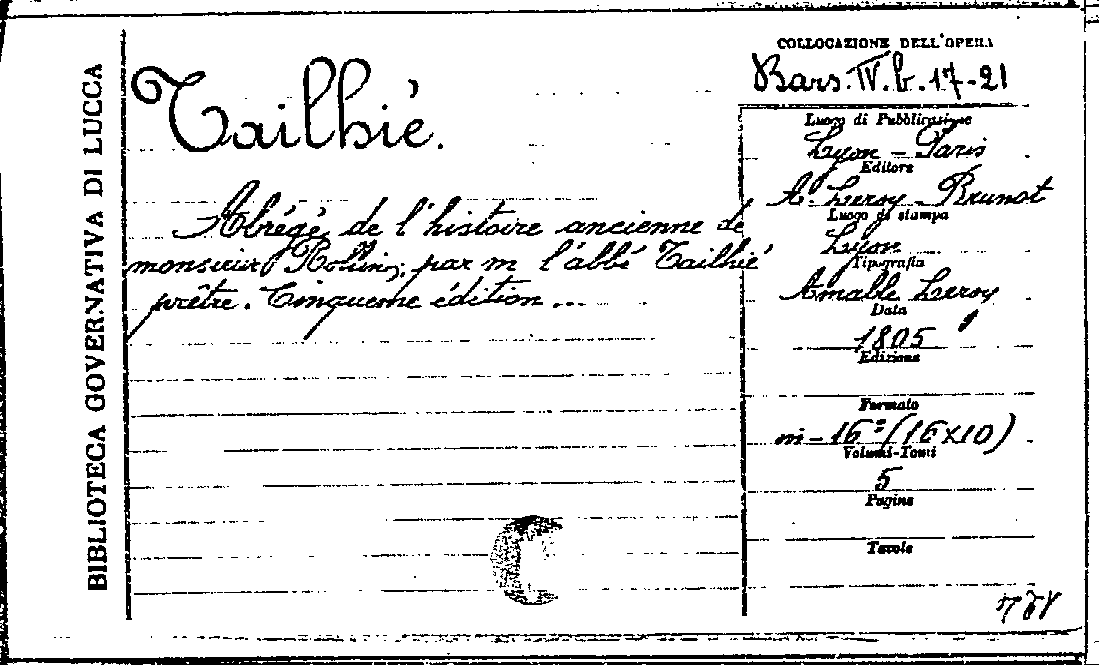 BIBLIOTECA GOVERNATIVA DI LUCCA
Tailhié.
Abrégé de l'histoire ancienne de
monsieur Rollin; par m l'abbé Tailhié
prêtre. Cinqueme édition ...
COLLOCAZIONE DELL'OPERA
Bars. IV. b. 17-21
Luogo di Pubblicazione
Lyon - Paris
Editore
A. Leroy - Brunot
Luogo di stampa
Lyon
Tipografia
Amable Leroy
Data
1805
Edizione
Formato
in-16º (16x10)
Volumi-Tomi
5
Pagine
Tavole